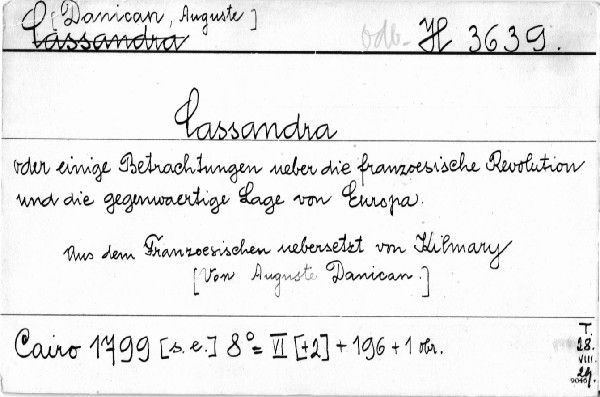 [Danican, Auguste]
Cassandra
odb. H 3639.
Cassandra
oder einige Betrachtungen ueber die franzoesische Revolution
und die gegenwaertige Lage von Europa.
Aus dem Franzoesischen uebersetzt von Kilmary
[Von Auguste Danican.]
Cairo 1799 [s. e.] 8°= VI [+2] + 196 + 1 obr.
T.
28.
VIII.
29.